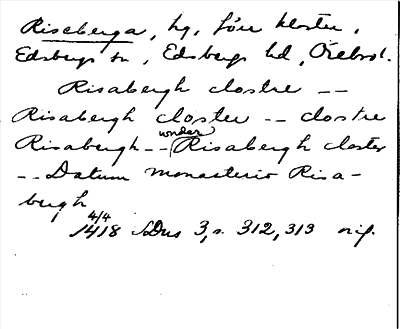 Riseberga, hg, förr kloster,
Edsbergs sn, Edsbergs hd, Örebro l.
Risabergh clostre --
Risabergh closter -- clostre
Risabergh -- wnder Risabergh closter
-- Datum monasterio Risa-
bergh
4/4
1418 SDns 3, s. 312, 313 orig.